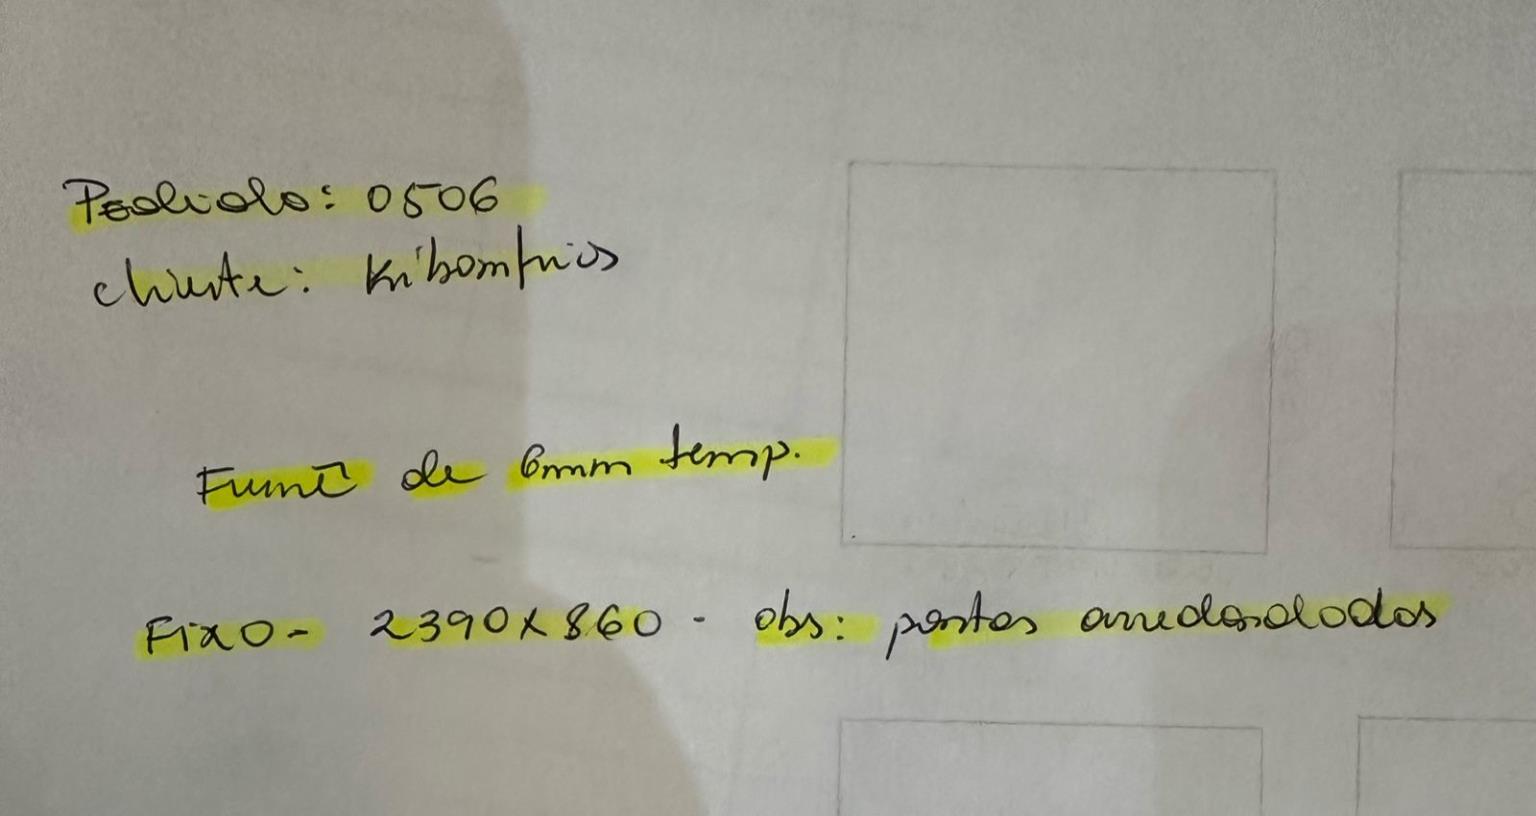 Pedido: 0506
cliente: Kribomfrios
Fumê de 6mm temp.
Fixo - 2390x860 - obs: pontas arredondadas